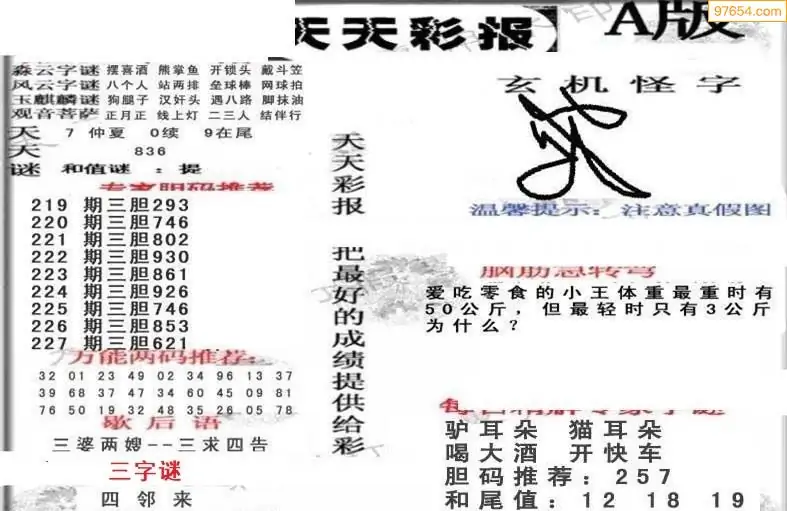 97654.com
天天彩报
A版
森云字谜 摆喜酒 熊掌鱼 开锁头 戴斗笠
风云字谜 八个人 站两排 垒球棒 网球拍
玉麒麟谜 狗腿子 汉奸头 遇八路 脚抹油
观音菩萨 正月正 线上灯 二三人 结伴行
天 7 仲夏 0续 9在尾
天 836
谜 和值谜 : 提
专家胆码推荐
219 期三胆293
220 期三胆746
221 期三胆802
222 期三胆930
223 期三胆861
224 期三胆926
225 期三胆746
226 期三胆853
227 期三胆621
万能两码推荐:
32 01 23 49 02 34 96 13 37
39 68 37 47 34 60 45 09 81
76 50 19 32 48 35 26 05 78
歇后语
三婆两嫂--三求四告
三字谜
四邻来
天天彩报 把最好的成绩提供给彩
玄机怪字
温馨提示: 注意真假图
脑筋急转弯
爱吃零食的小王体重最重时有
50公斤，但最轻时只有3公斤
为什么？
驴耳朵 猫耳朵
喝大酒 开快车
胆码推荐: 257
和尾值: 12 18 19